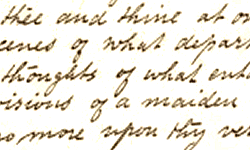 thee and thine at o
cenes of what depar
thoughts of what ent
visions of a maiden
no more upon thy ve